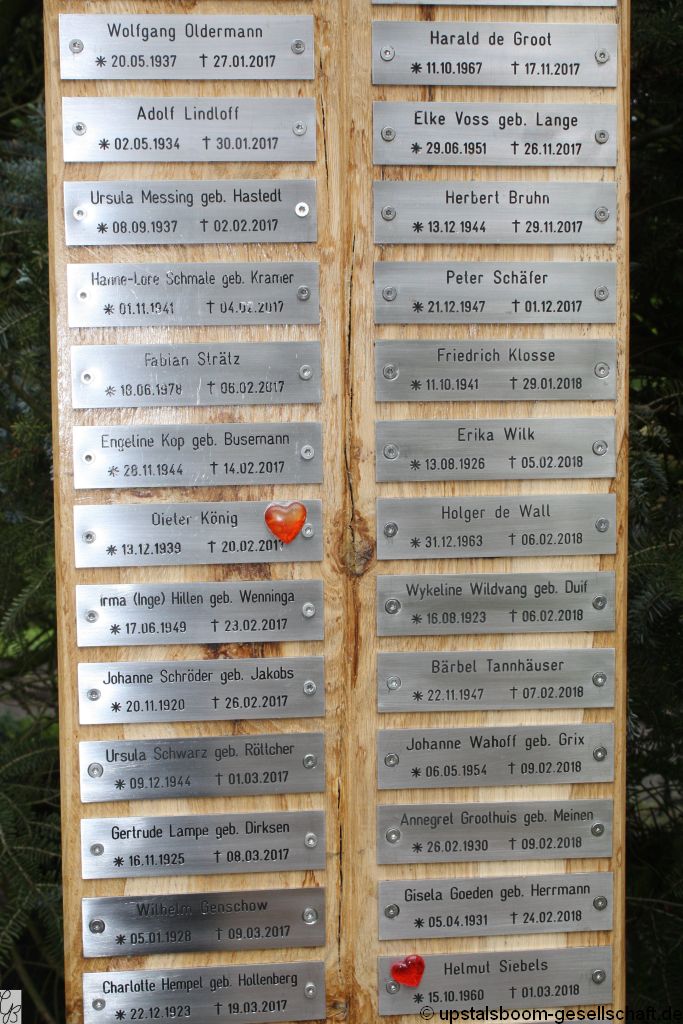 Wolfgang Oldermann
* 20.05.1937 † 27.01.2017
Adolf Lindloff
* 02.05.1934 † 30.01.2017
Ursula Messing geb. Hastedt
* 08.09.1937 † 02.02.2017
Hanne-Lore Schmale geb. Kramer
* 01.11.1941 † 04.02.2017
Fabian Strätz
* 18.06.1978 † 06.02.2017
Engeline Kop geb. Busemann
* 28.11.1944 † 14.02.2017
Dieter König
* 13.12.1939 † 20.02.2017
Irma (Inge) Hillen geb. Wenninga
* 17.06.1949 † 23.02.2017
Johanne Schröder geb. Jakobs
* 20.11.1920 † 26.02.2017
Ursula Schwarz geb. Röllcher
* 09.12.1944 † 01.03.2017
Gertrude Lampe geb. Dirksen
* 16.11.1925 † 08.03.2017
Wilhelm Genschow
* 05.01.1928 † 09.03.2017
Charlotte Hempel geb. Hollenberg
* 22.12.1923 † 19.03.2017
Harald de Groot
* 11.10.1967 † 17.11.2017
Elke Voss geb. Lange
* 29.06.1951 † 26.11.2017
Herbert Bruhn
* 13.12.1944 † 29.11.2017
Peter Schäfer
* 21.12.1947 † 01.12.2017
Friedrich Klosse
* 11.10.1941 † 29.01.2018
Erika Wilk
* 13.08.1926 † 05.02.2018
Holger de Wall
* 31.12.1963 † 06.02.2018
Wykeline Wildvang geb. Duif
* 16.08.1923 † 06.02.2018
Bärbel Tannhäuser
* 22.11.1947 † 07.02.2018
Johanne Wahoff geb. Grix
* 06.05.1954 † 09.02.2018
Annegret Groothuis geb. Meinen
* 26.02.1930 † 09.02.2018
Gisela Goeden geb. Herrmann
* 05.04.1931 † 24.02.2018
Helmut Siebels
* 15.10.1960 † 01.03.2018
© upstalsboom-gesellschaft.de